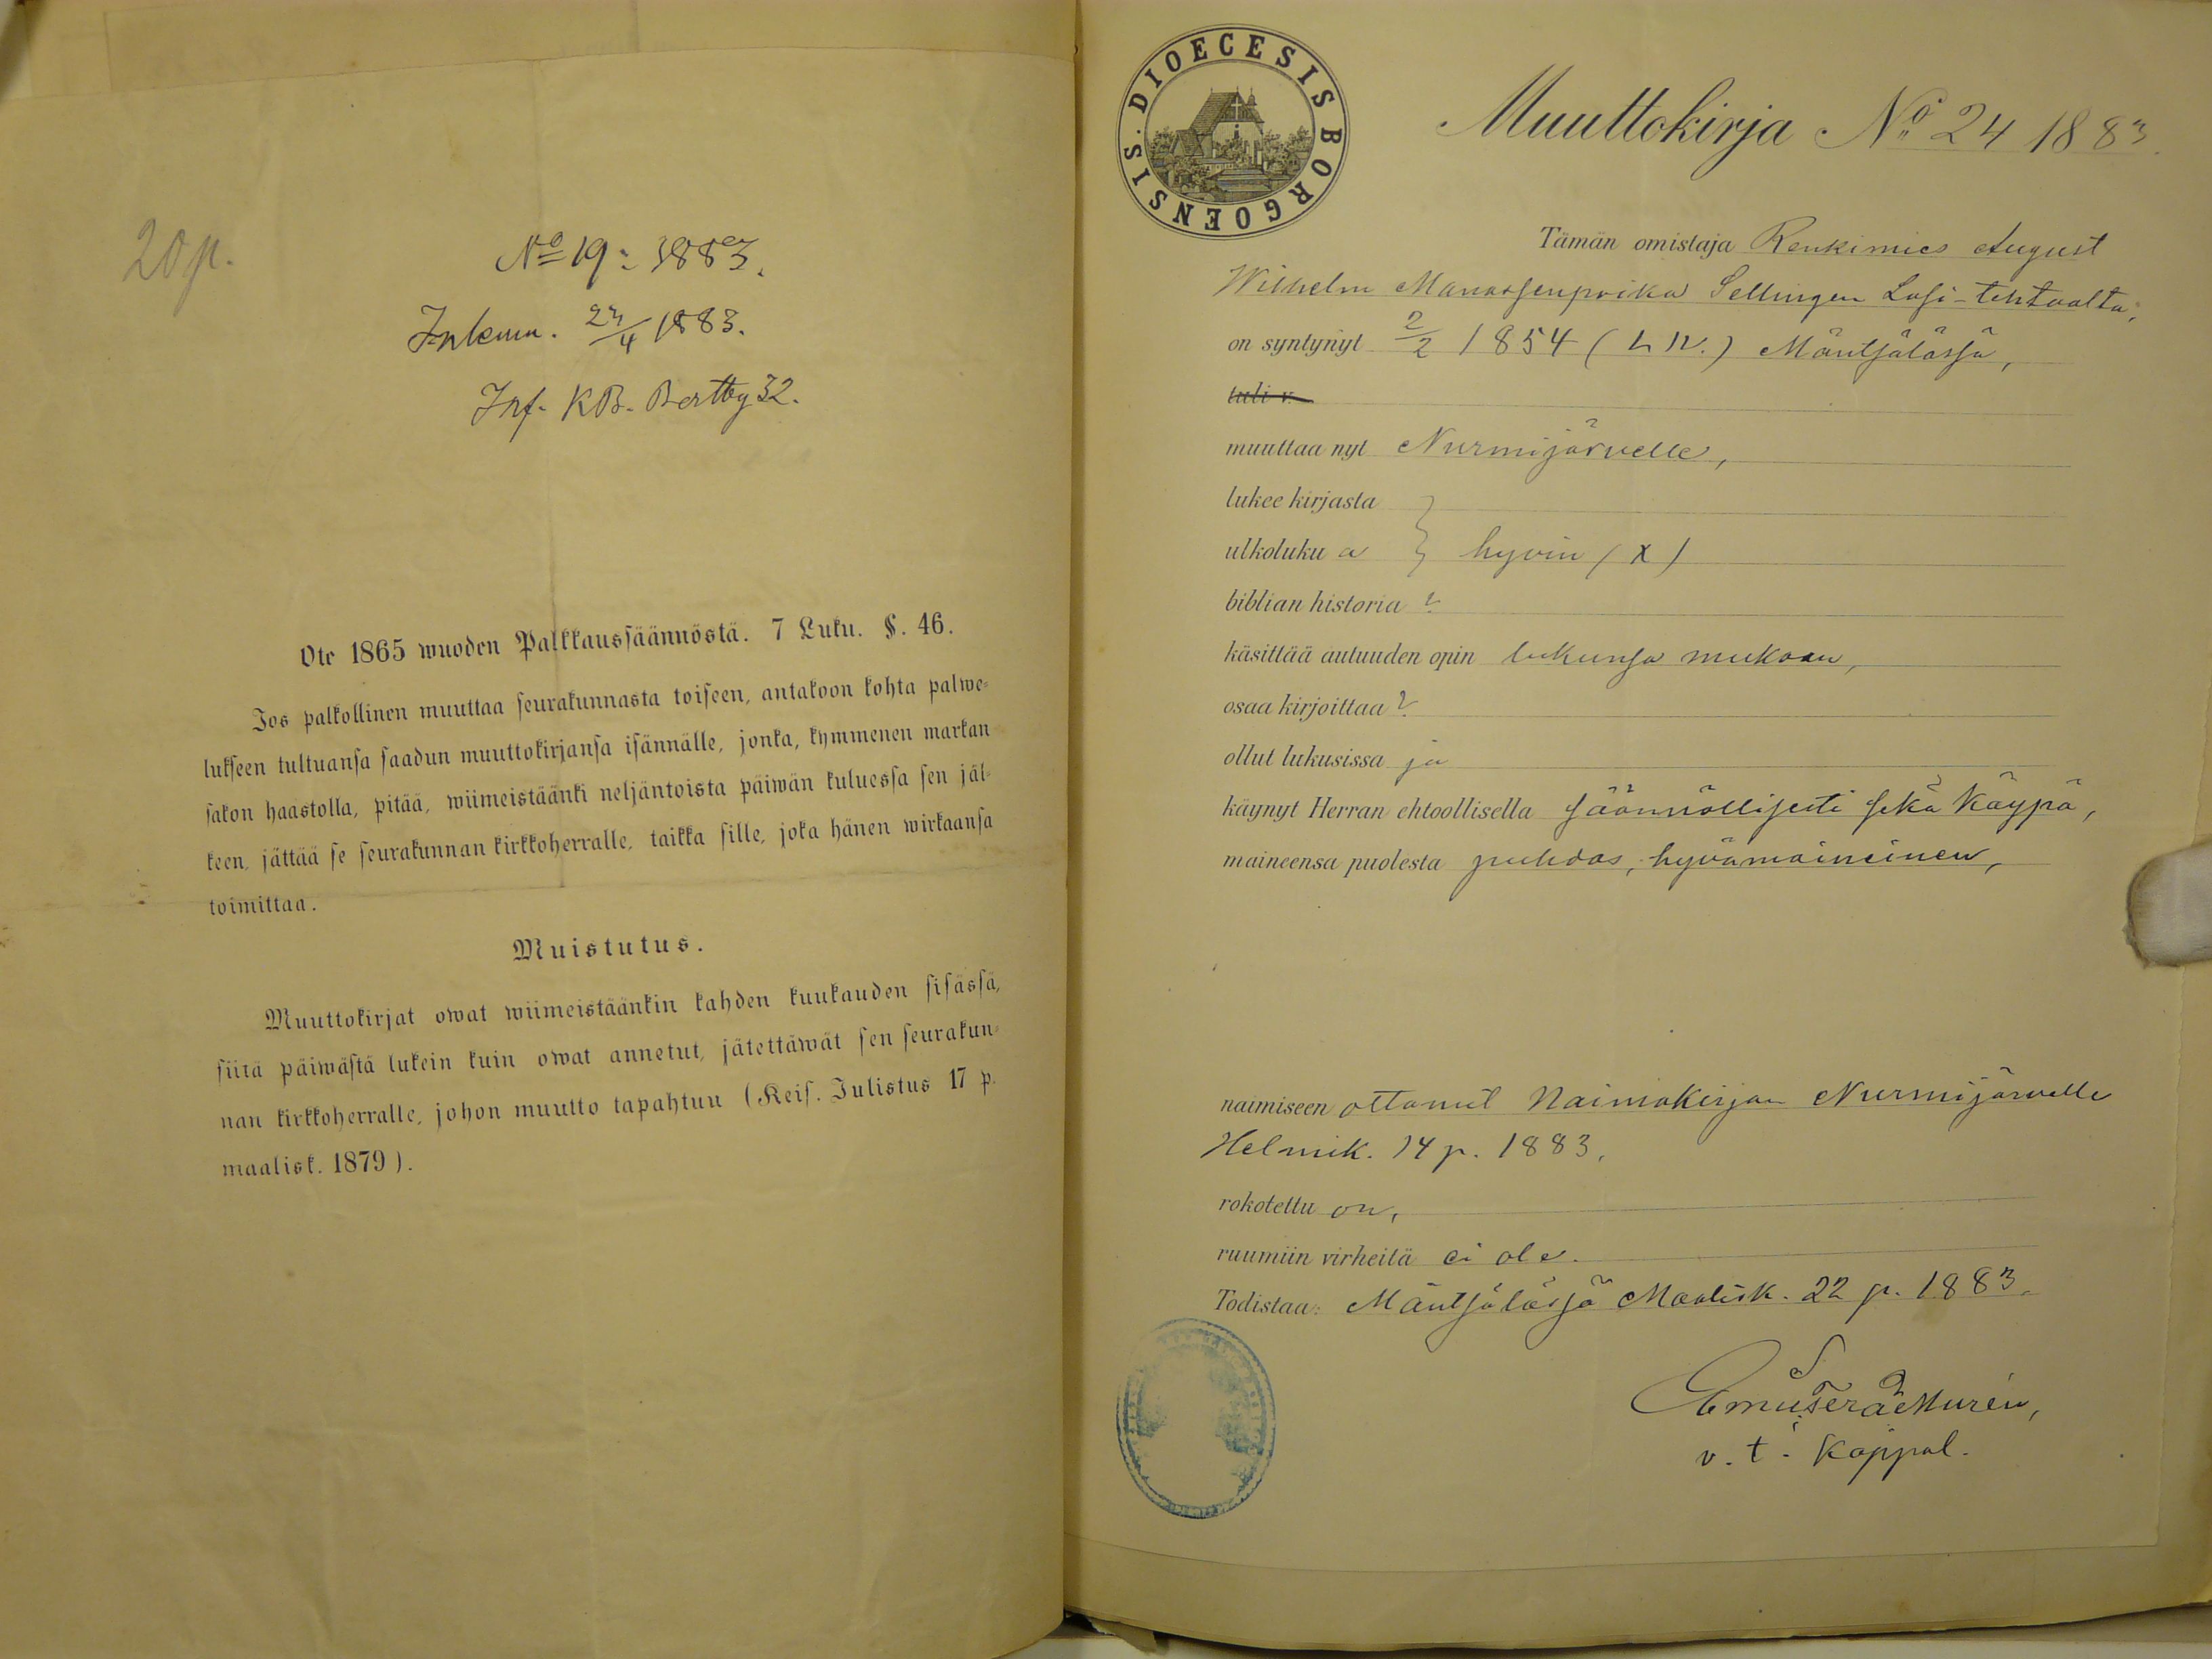 20 p.
No 19: 1883.
Inkom. 24/4 1883.
Inf. KB. Bertby 32.
Ote 1865 wuoden Palkkaussäännöstä. 7 Luku. §. 46.
Jos palkollinen muuttaa seurakunnasta toiseen, antakoon kohta palwe-
lukseen tultuansa saadun muuttokirjansa isännälle, jonka, kymmenen markan
sakon haastolla, pitää, wiimeistäänki neljäntoista päiwän kuluessa sen jäl-
keen, jättää se seurakunnan kirkkoherralle, taikka sille, joka hänen wirkaansa
toimittaa.
Muistutus.
Muuttokirjat owat wiimeistäänkin kahden kuukauden sisässä,
siitä päiwästä lukein kuin owat annetut, jätettäwät sen seurakun-
nan kirkkoherralle, johon muutto tapahtuu (Keis. Julistus 17 p.
maalisk. 1879).
DIOECESIS BORGOENSIS.
Muuttokirja No 24 1883.
Tämän omistaja Renkimies August
Wilhelm Manassenpoika Sellingen Lasi-tehtaalta,
on syntynyt 2/2 1854 ( ) Mäntsälässä,
tuli v.
muuttaa nyt Nurmijärvelle,
lukee kirjasta
ulkoluku a } hyvin (x)
biblian historia ?
käsittää autuuden opin lukunsa mukaan,
osaa kirjoittaa ?
ollut lukusissa ja
käynyt Herran ehtoollisella säännöllisesti sekä käypä,
maineensa puolesta puhdas, hyvämaineinen,
naimiseen ottanut Naimakirjan Nurmijärvelle
Helmik. 14 p. 1883.
rokotettu on,
ruumiin virheitä ei ole.
Todistaa: Mäntsälässä Maalisk. 22 p. 1883.
v. t. Kappal.